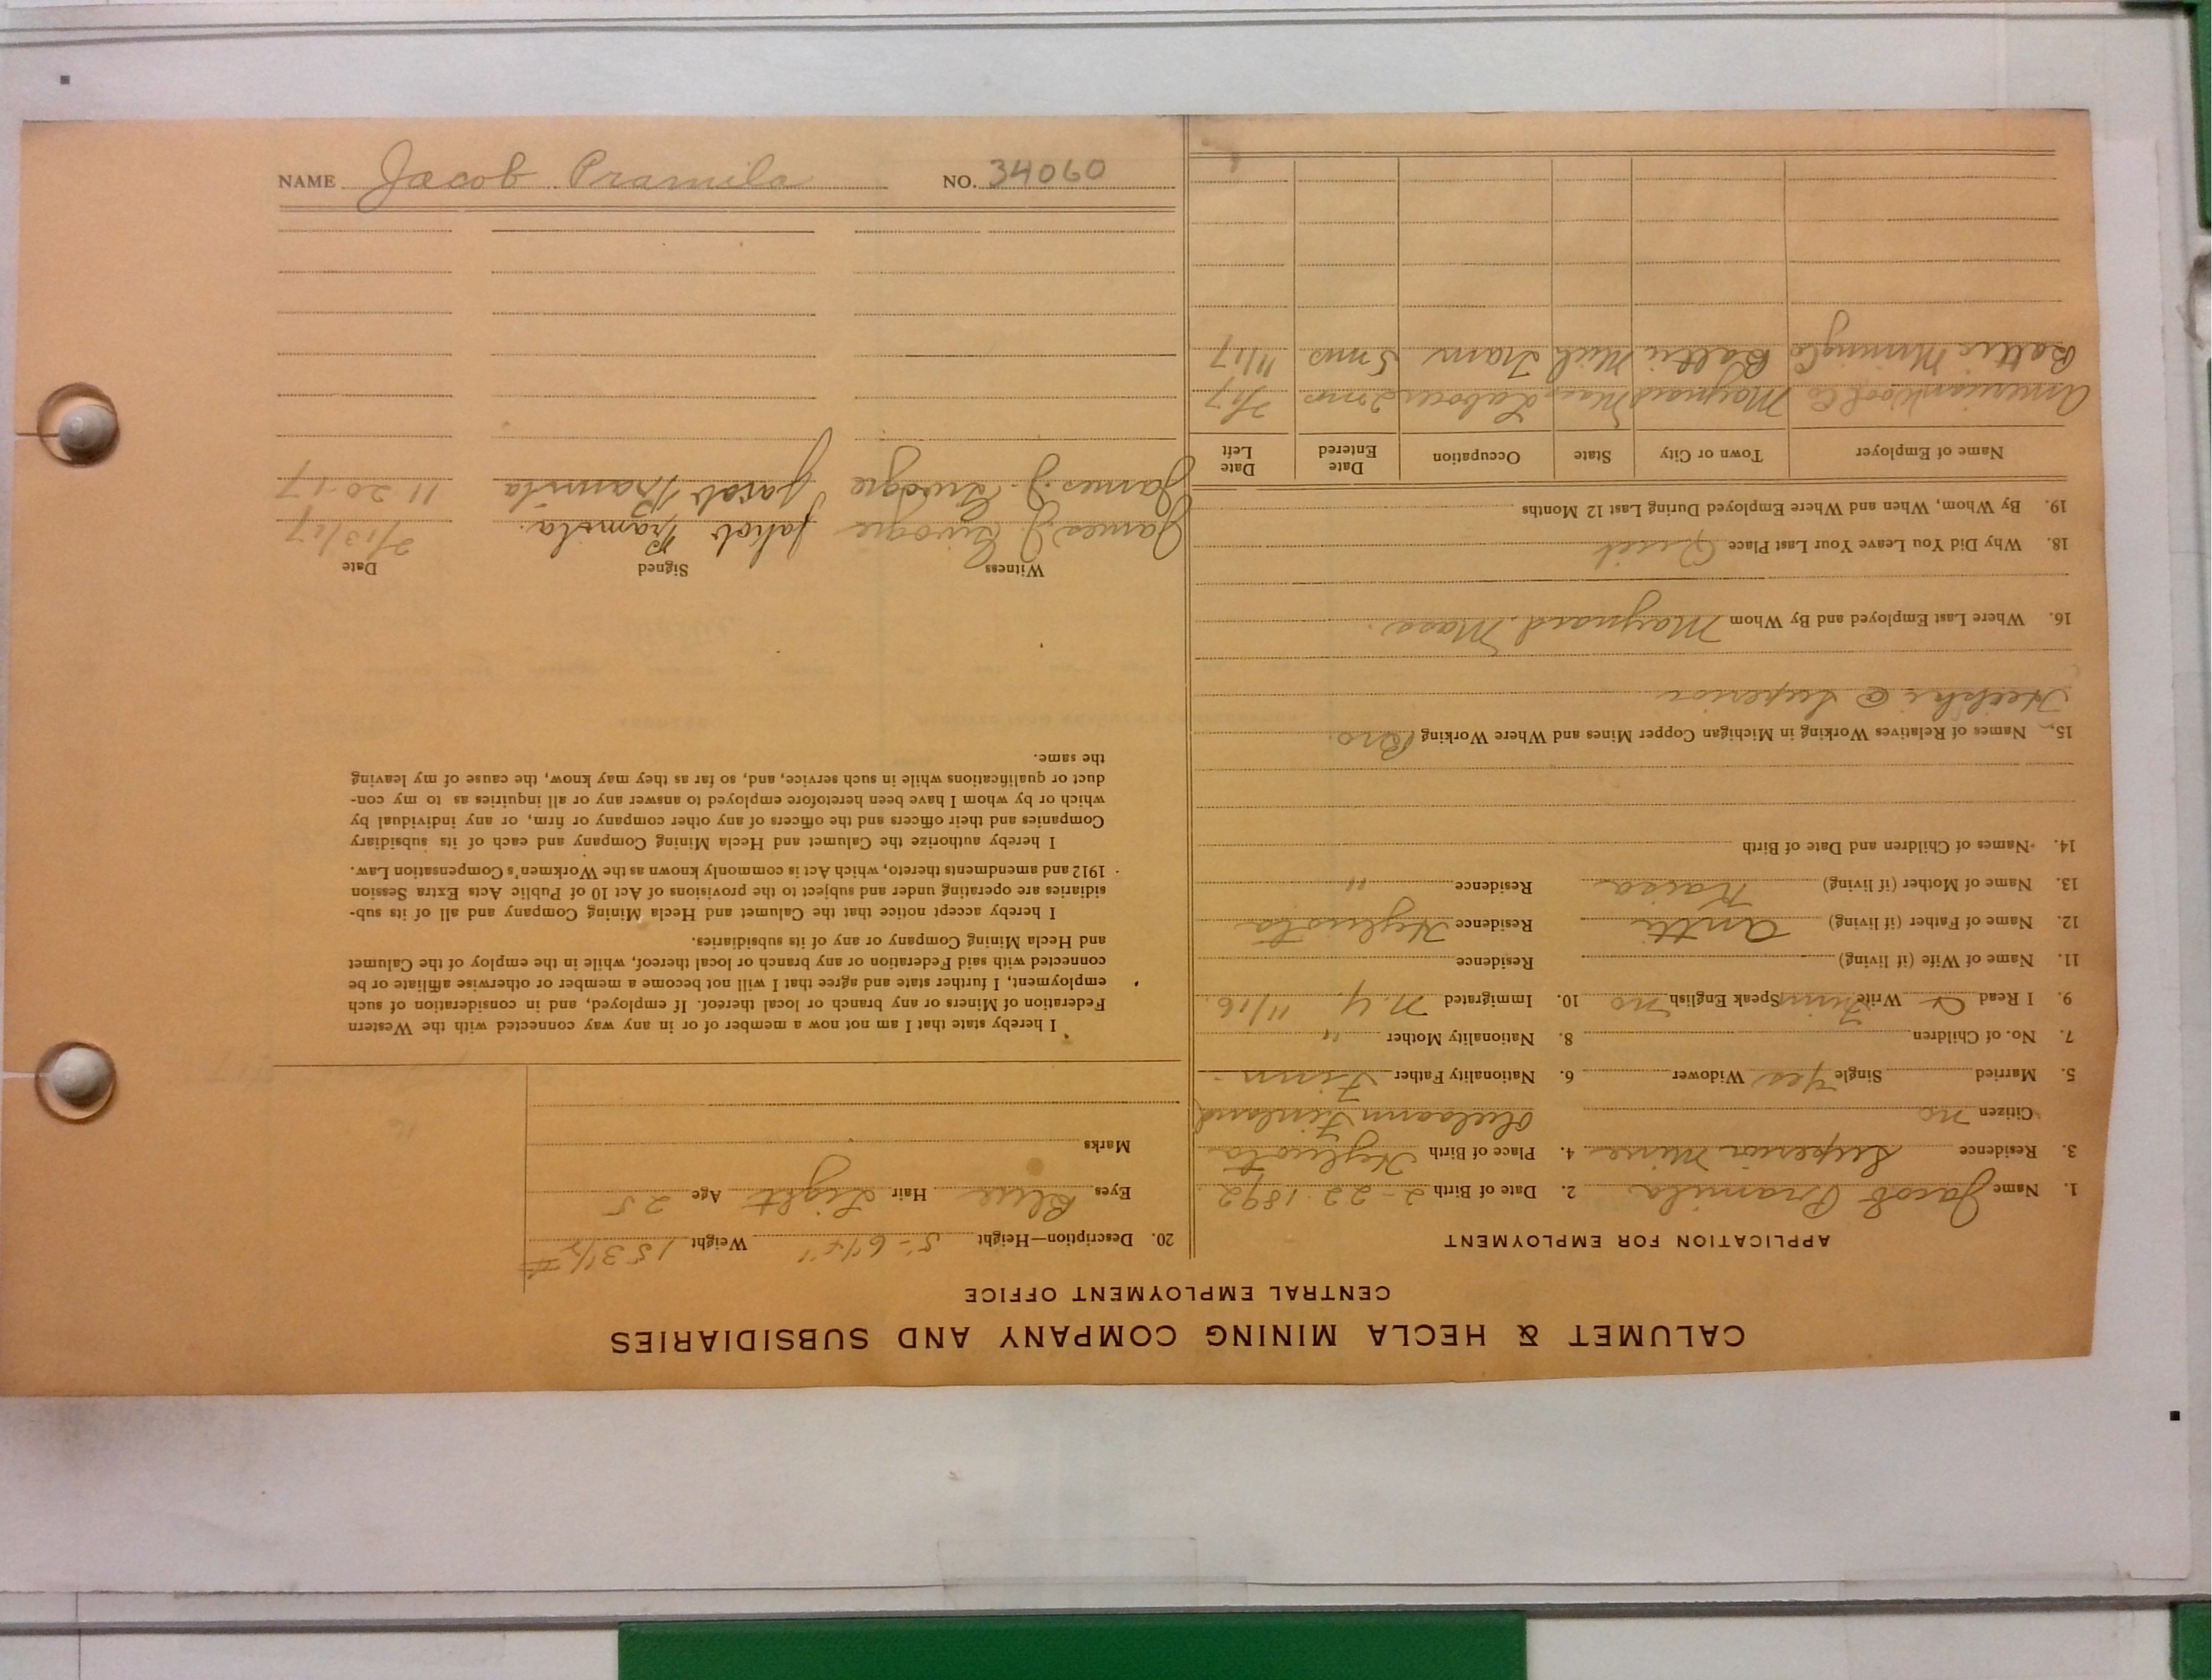 NAME Jacob Pramila NO. 34060
CALUMET & HECLA MINING COMPANY AND SUBSIDIARIES
CENTRAL EMPLOYMENT OFFICE
APPLICATION FOR EMPLOYMENT
1. Name Jacob Pramila 2. Date of Birth 2-22-1892
3. Residence Superior Mine 4. Place of Birth
Citizen no Finland
5. Married Single Yes Widower 6. Nationality Father Finn
7. No. of Children 8. Nationality Mother "
9. I Read & Write Finn Speak English no 10. Immigrated N.Y. 11/16
11. Name of Wife (if living) Residence
12. Name of Father (if living) Antti Residence
13. Name of Mother (if living) Kaisa Residence "
14. Names of Children and Date of Birth
15. Names of Relatives Working in Michigan Copper Mines and Where Working Bro.
Heikki @ Superior
16. Where Last Employed and By Whom Maynard, Mass.
18. Why Did You Leave Your Last Place Quit
19. By Whom, When and Where Employed During Last 12 Months
Name of Employer Town or City State Occupation Date Entered Date Left
American Wool Co Maynard Mass Laborer 2 mos 2/17
Baltic Mining Co Baltic Mich Tram 5 mos 11/17
20. Description—Height 5'-6¼" Weight 153½ #
Eyes Blue Hair Light Age 25
Marks
I hereby state that I am not now a member of or in any way connected with the Western
Federation of Miners or any branch or local thereof. If employed, and in consideration of such
employment, I further state and agree that I will not become a member or otherwise affiliate or be
connected with said Federation or any branch or local thereof, while in the employ of the Calumet
and Hecla Mining Company or any of its subsidiaries.
I hereby accept notice that the Calumet and Hecla Mining Company and all of its sub-
sidiaries are operating under and subject to the provisions of Act 10 of Public Acts Extra Session
1912 and amendments thereto, which Act is commonly known as the Workmen's Compensation Law.
I hereby authorize the Calumet and Hecla Mining Company and each of its subsidiary
Companies and their officers and the officers of any other company or firm, or any individual by
which or by whom I have been heretofore employed to answer any or all inquiries as to my con-
duct or qualifications while in such service, and, so far as they may know, the cause of my leaving
the same.
Witness Signed Date
James J. Jakob Pramila. 2/13/17
James J. Jacob Pramila 11-20-17